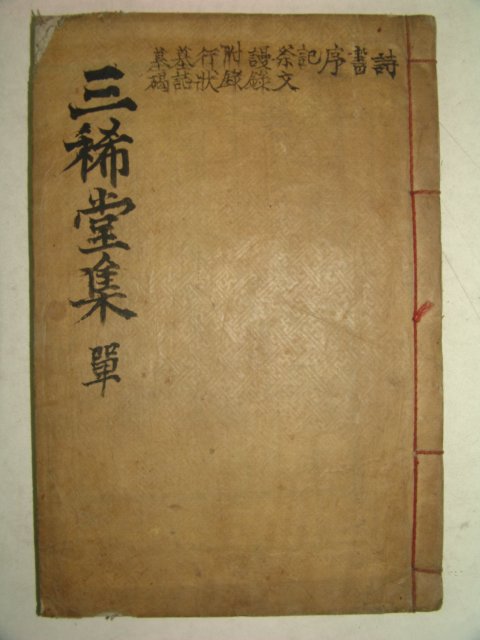 詩
書
序
記
祭文
謾錄
附錄
行狀
墓誌
墓碣
三稀堂集 單